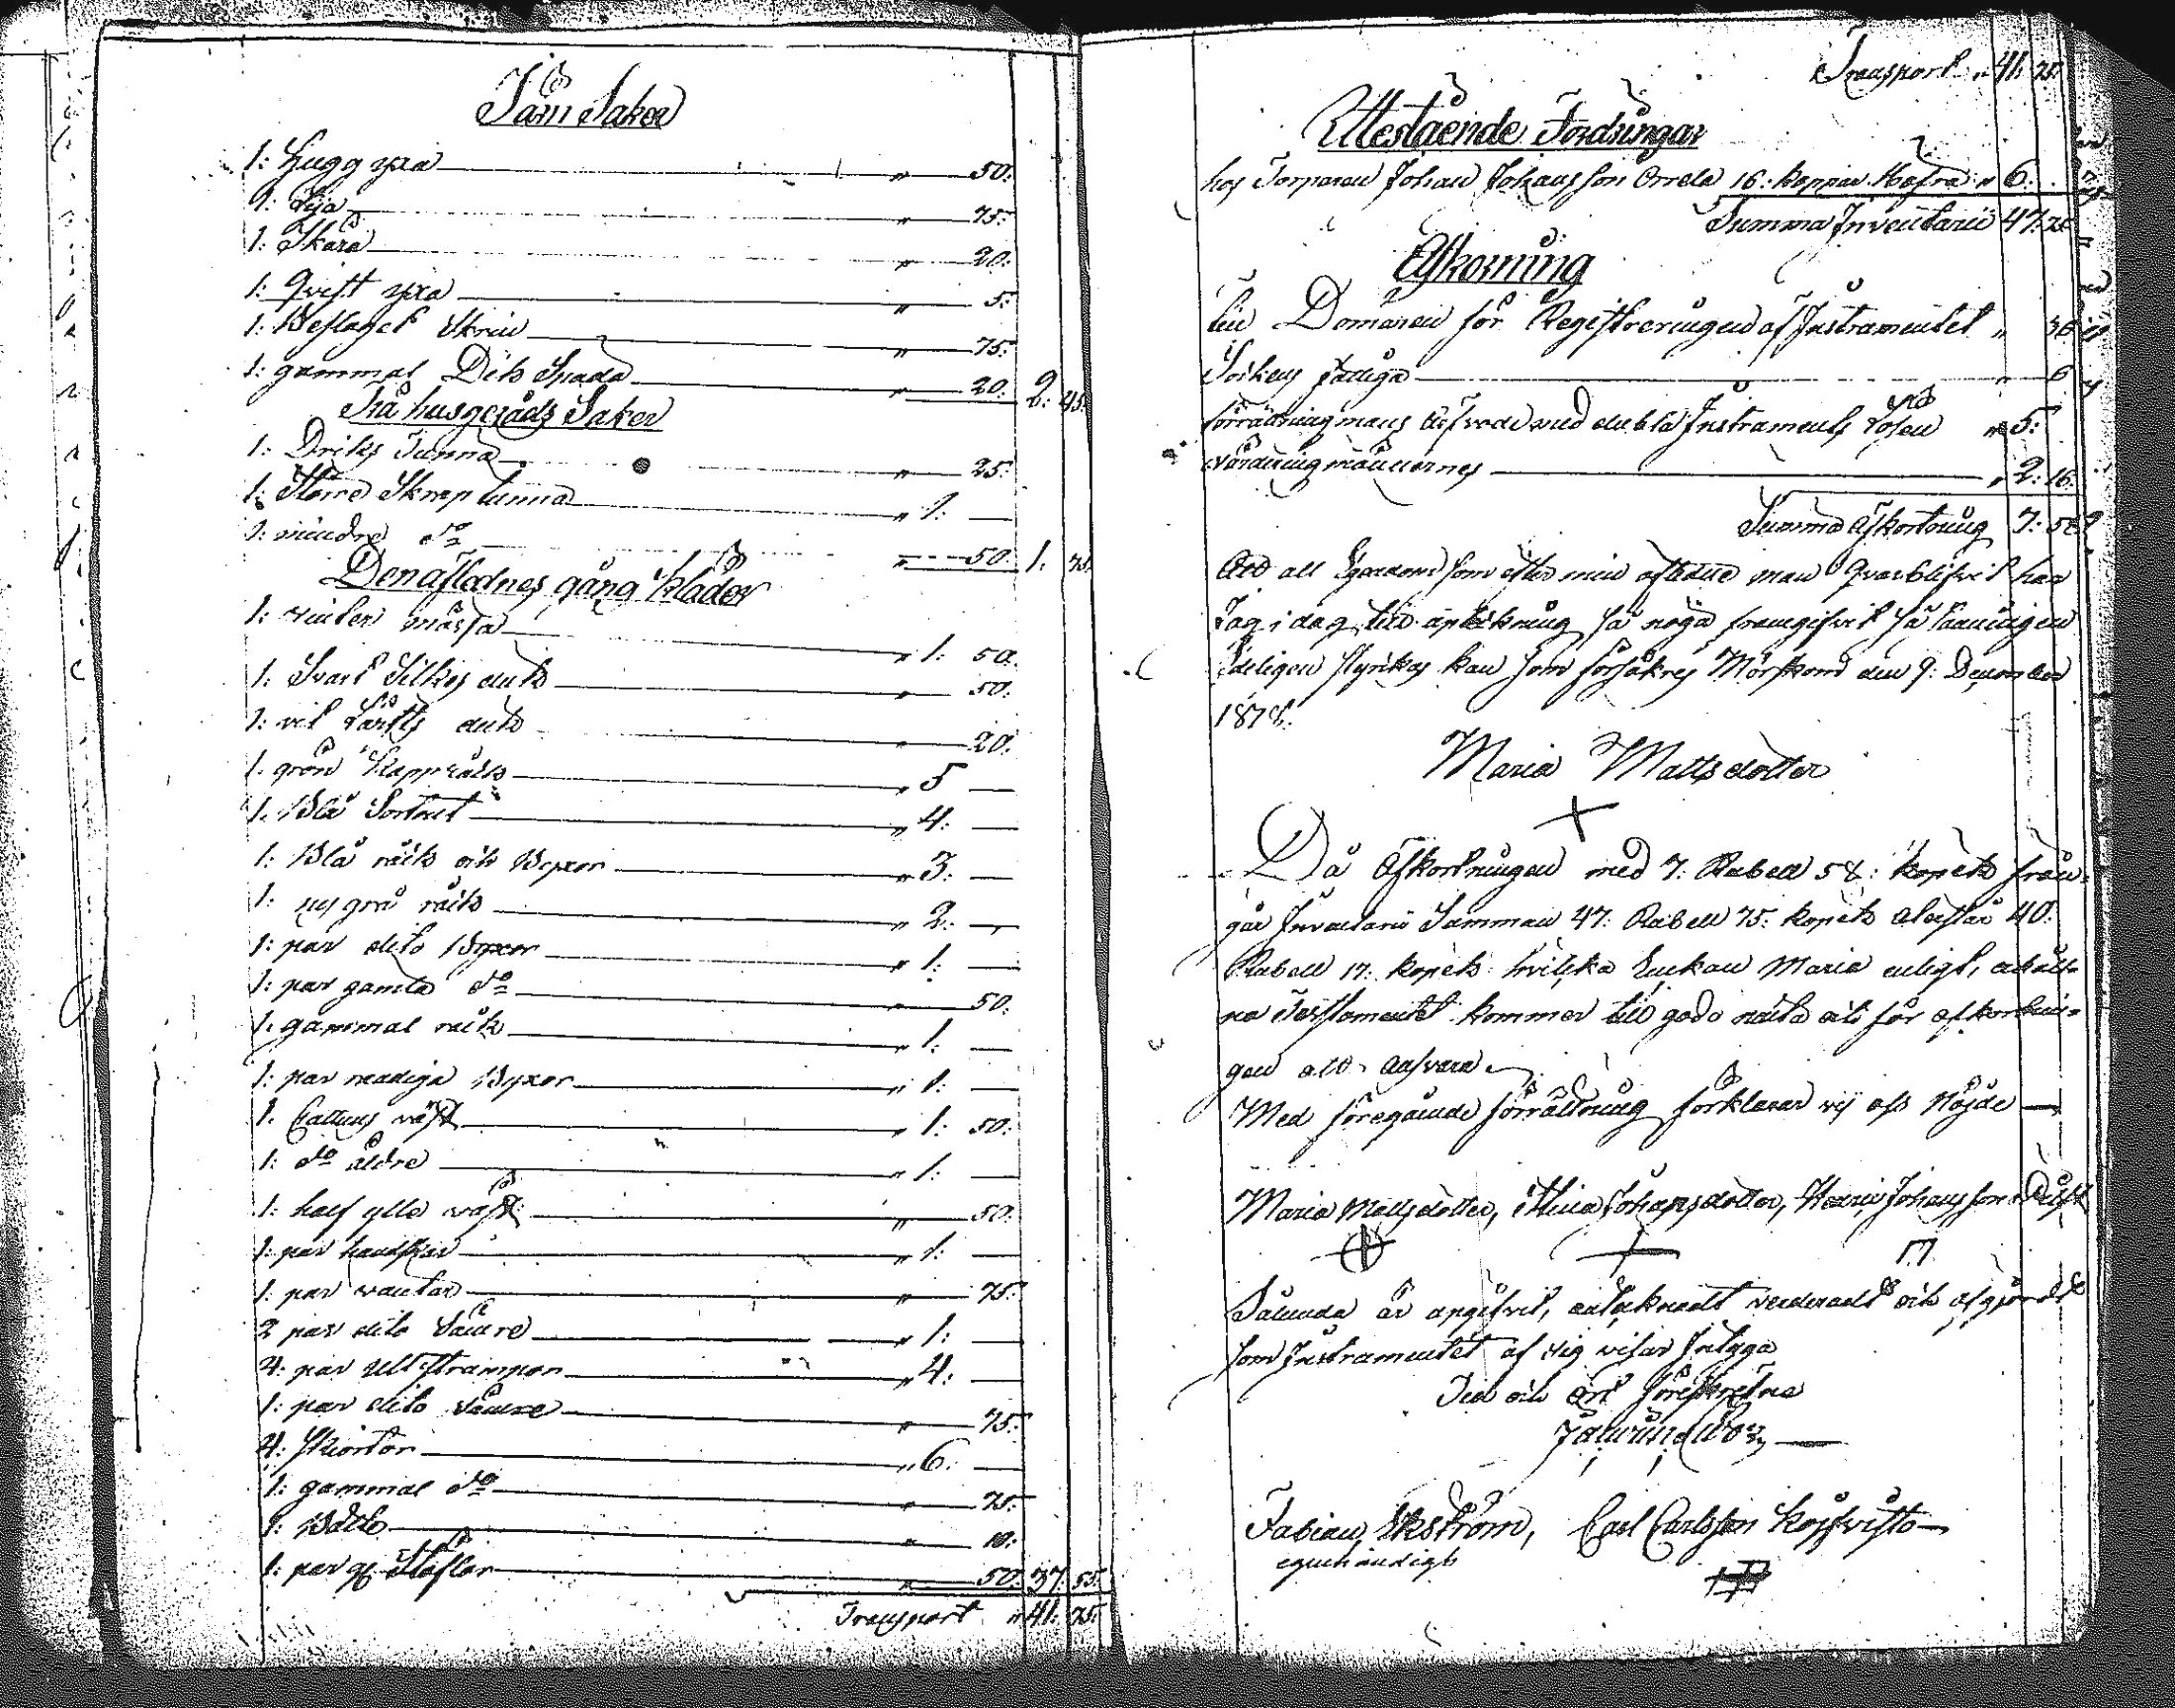 Järn Saker
1: Hugg yxa " 50:
1: Lija " 75:
1: Skära " 20:
1: Qvist yxa " 5:
1: Beslaget Skrin " 75:
1: gammal Dito Spada " 20: 2: 45:
Trä husgeråds Saker
1: Driks Tunna " 25:
1: Större Skrap tunna " 1: —
1: mindre do " 50: 1: 75:
Den aflednes gång kläder
1: vinter mössa " 1: 50:
1: Svart Silkes duk " 50:
1: vit Lärfts duk " 20:
1: grön Kapprock " 5 —
1: Blå Sortut " 4: —
1: Blå råck och Byxor " 3: —
1: ny grå råck " 2: —
1: par dito Byxor " 1: —
1: par gamla do " 50:
1: gammal råck " 1: —
1: par Byxor " 1: —
1: Cattuns väst " 1: 50:
1: do äldre " 1: —
1: half ylle väst " 50:
1: par handskar " 1: —
1: par vantar " 75:
2 par dito Sämre " 1: —
4: par ull strumpor " 4: —
1: par dito Sämre " 75:
4: Skiortor " 6: —
1: gammal do " 75:
1: Bälte " 10:
1: par gl Stöflar " 50: 37: 55:
Transport " 41: 75:
Transport " 41: 75:
Utestående Fordringar
hos Torparen Johan Johansson Orrela 16: kappar Hafra " 6:
Summa Inventarii 47: 75
Afkortning
till Domaren för Registreringen af Instrumentet " 36
Sockens fattiga " 6
förrättningmans arfvode med dubla Instruments Lösen " 5:
värderingmännernes " 2: 16:
Summa Afkortning 7: 58
Att all Egendom som efter min aflidne man Qvarblifvit har
Jag i dag till upteckning så noga framgifvit så sanningen
Edeligen styrkas kan som försäkres Mörskom den 9: December
1878.
Maria Mattsdotter
Då Afkortningen med 7: Rubell 58: kopek från-
går Inventarii Summan 47: Rubell 75: kopek återstår 40:
Rubell 17: kopek hvilka Enkan Maria enligt,
na Testamentet kommer till godo niuta och för afkortnin-
gen att ansvara
Med föregående förrättning förklarar vij oss Nöjde —
Maria Mattsdotter, Stina Johansdotter, Henric Johansson
Sålunda är upgifvit, antecknadt värderadt och afgjordt
som Instrumentet af sig visar Intyga
Tid och ort föreskrefne
Fabian Ekström, Carl Carlsson
egenhändigt